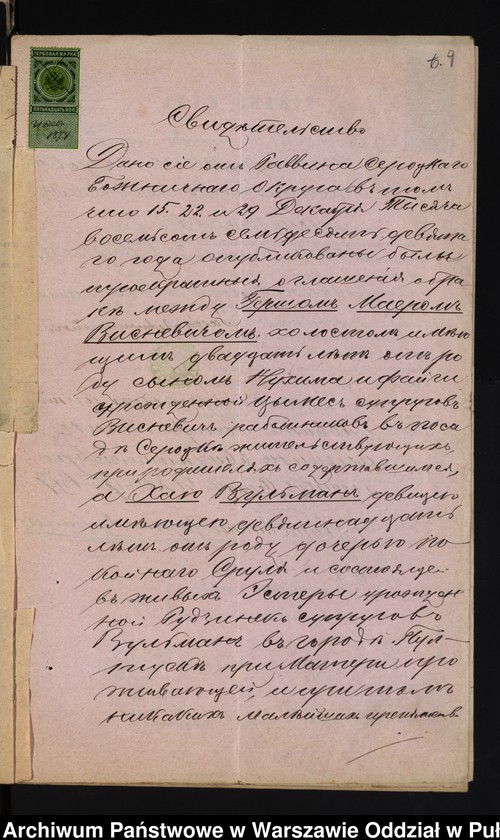 6. 9
ГЕРБОВАЯ МАРКА
ПЯТЬНАДЦАТЬ КОП.
Свидѣтельство
Дано сіе отъ Раввина Сероцкаго
Божничнаго Округа въ томъ
что 15. 22. и 29 Декабря Тысяча
восемьсотъ семьдесятъ девята
го года опубликованы были
троекратныя оглашенія о бра
кѣ между Гершомъ Маеромъ
Висневичомъ, холостомъ имѣю
щимъ двадцать лѣтъ отъ ро
ду сыномъ Нухима и Файги
урожденной Цымесъ супруговъ
Висневичъ работниковъ въ поса
дѣ Сероцкѣ жительствующихъ,
при родителяхъ содержавшимся,
а Хаю Вульманъ девицею
имѣющею девятнадцать
лѣтъ отъ роду дочерью по
койнаго Сруля и состоящей
въ живыхъ Эстеры урожден
ной Рудзинекъ супруговъ
Вульманъ въ городѣ Пул-
тускѣ при Матери про
живающей, и при томъ
никакихъ малѣйшихъ препятствiй
Archiwum Państwowe w Warszawie Oddział w Puł